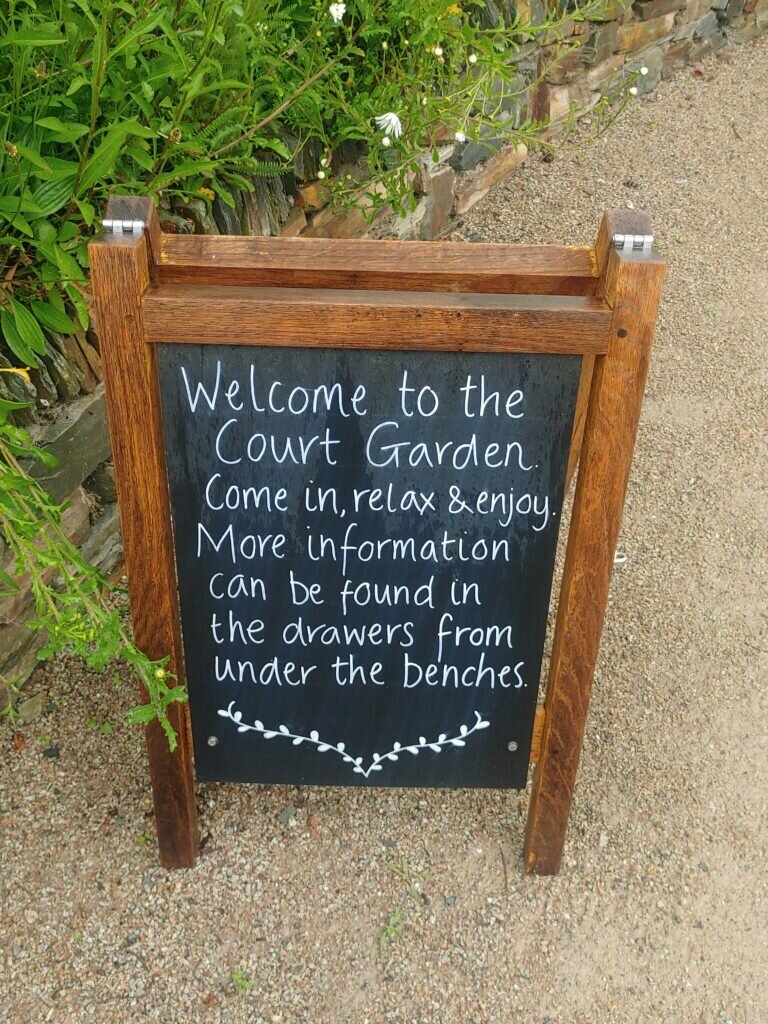 Welcome to the
Court Garden.
Come in, relax & enjoy.
More information
can be found in
the drawers from
under the benches.